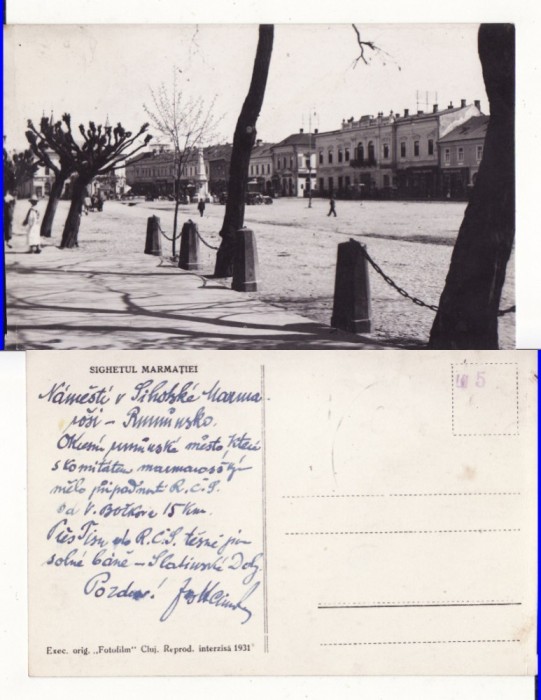 SIGHETUL MARMAȚIEI
Náměstí v Sihotské Marma-
roši – Rumunsko.
rumunské město, které
s komitátem marmarošským
mělo připadnout R.Č.S.
od V. Bočkova 15 Km.
Přes Tisu do R.Č.S. těsně
solné báně – Slatinské Doly.
Pozdrav!
5
Exec. orig. „Fotofilm" Cluj. Reprod. interzisă 1931